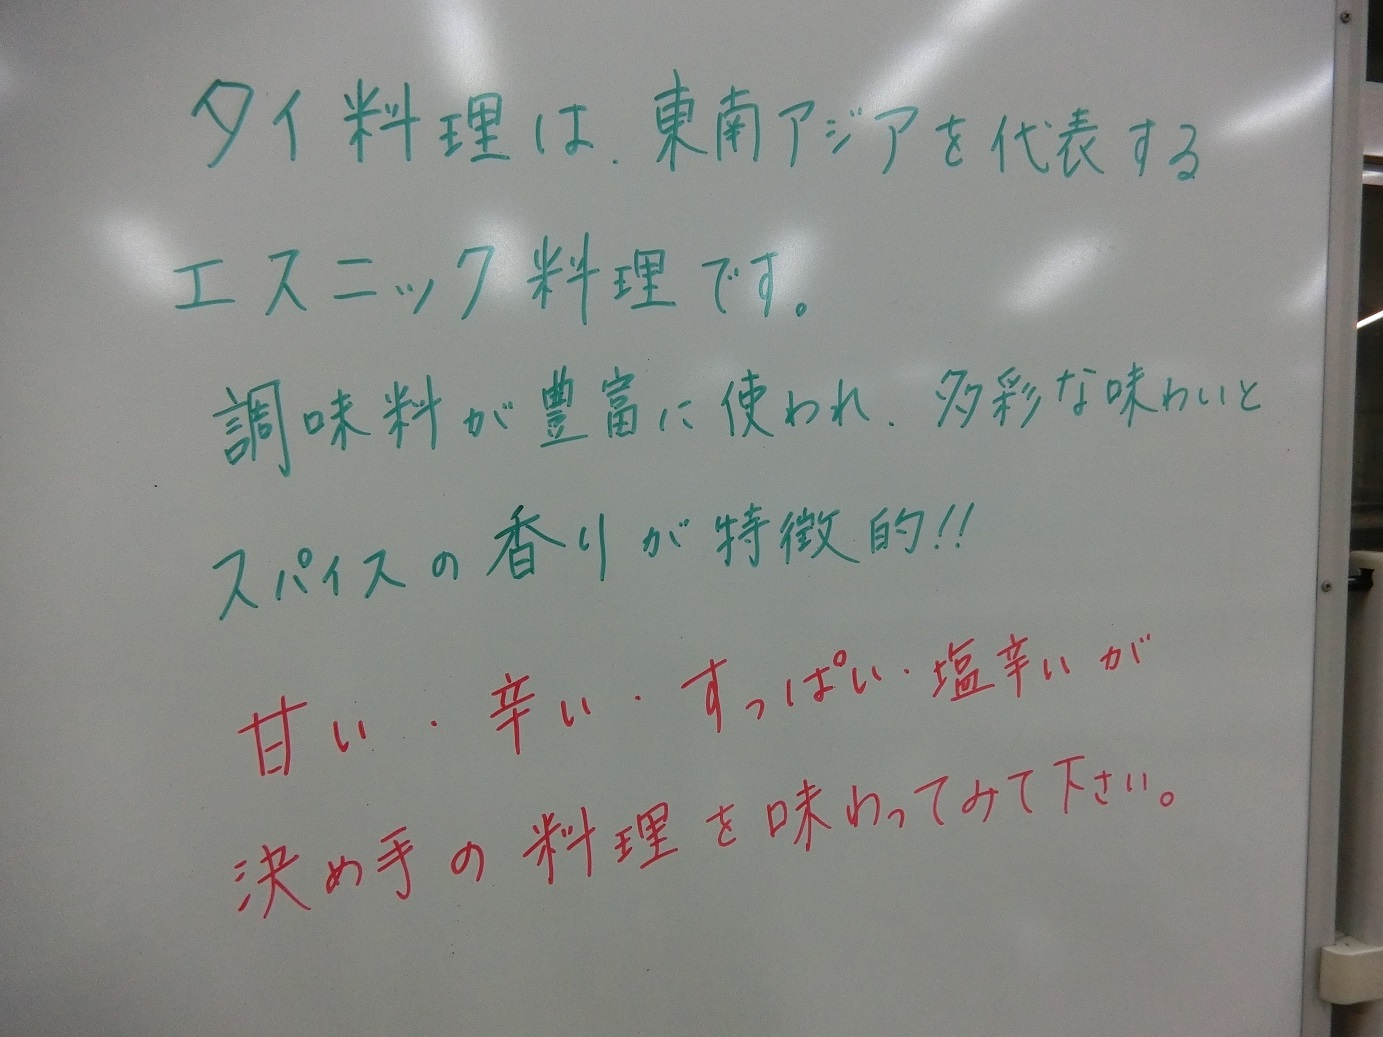 タイ料理は、東南アジアを代表する
エスニック料理です。
調味料が豊富に使われ、多彩な味わいと
スパイスの香りが特徴的!!
甘い・辛い・すっぱい・塩辛いが
決め手の料理を味わってみて下さい。